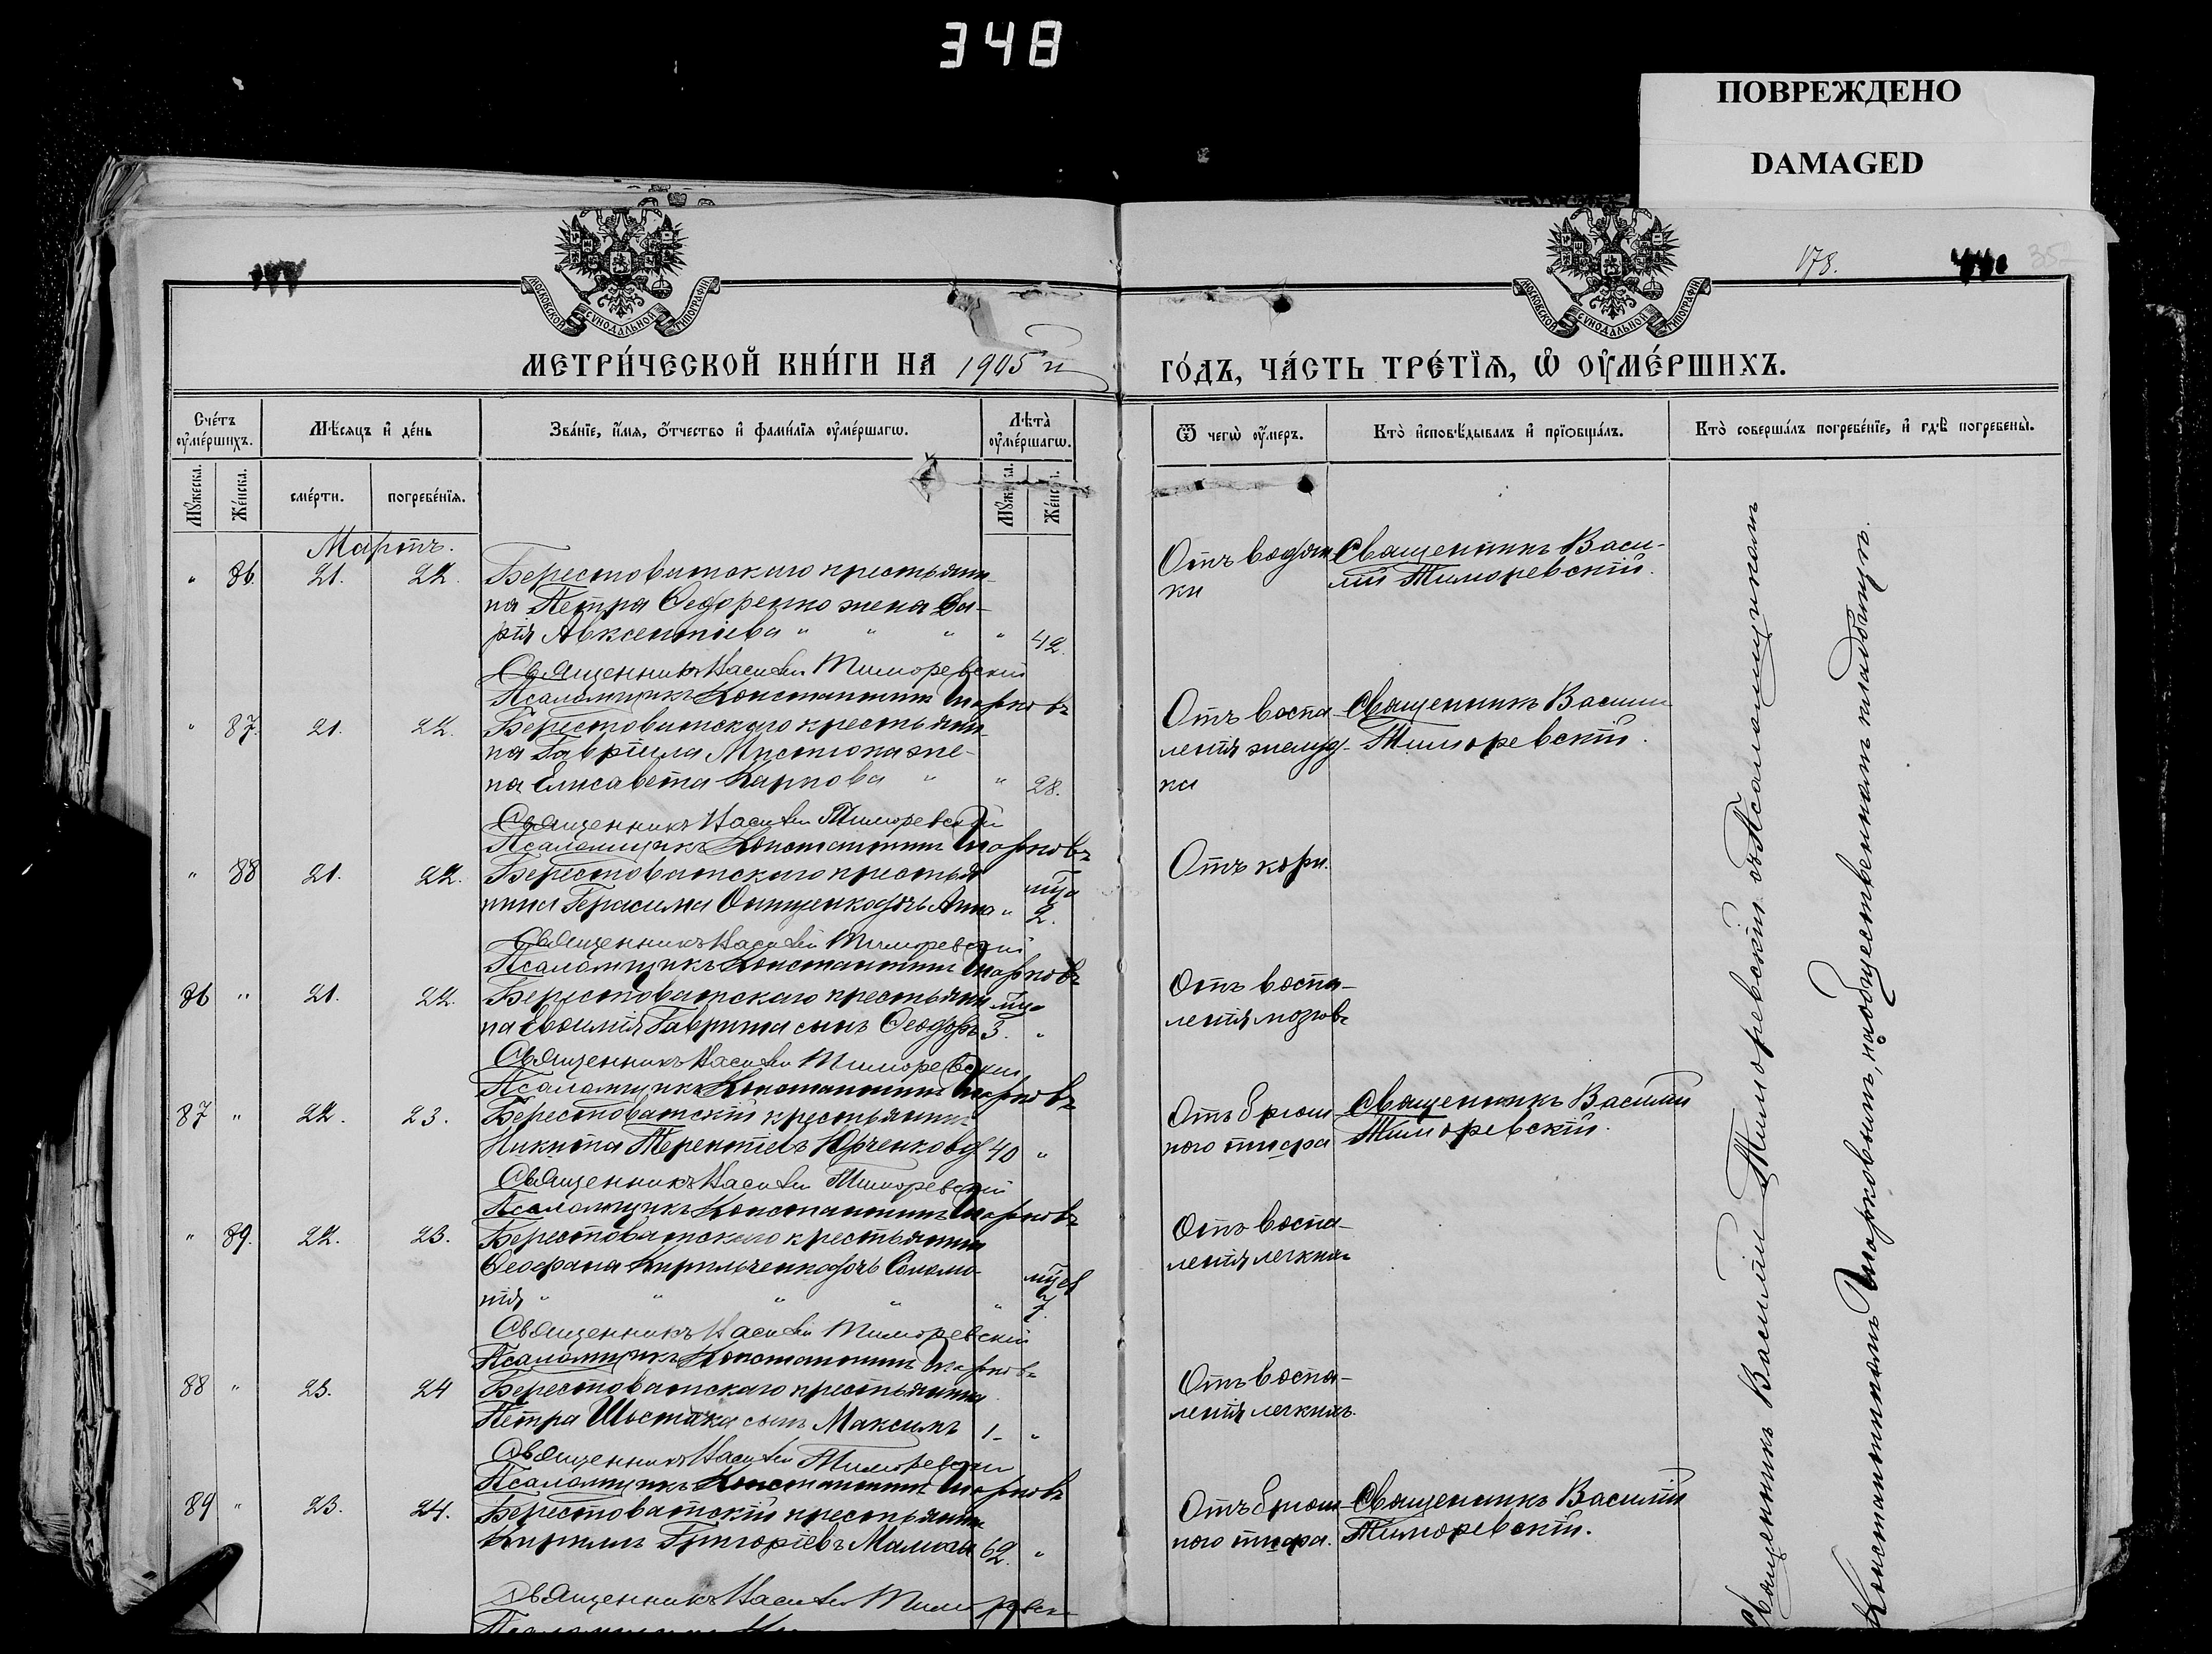 348
ПОВРЕЖДЕНО
DAMAGED
178.
МОСКОВСКОЙ СѴНОДАЛЬНОЙ ТИПОГРАФІИ
МОСКОВСКОЙ СѴНОДАЛЬНОЙ ТИПОГРАФІИ
МЕТРИ́ЧЕСКОЙ КНИ́ГИ НА 1905 й
ГО́ДЪ, ЧА́СТЬ ТРЕ́ТІѦ, Ѡ҆ ОУ҆МЕ́РШИХЪ.
Счéтъ оу҆мéршихъ.
Мѣ́сяцъ и҆ дéнь
Звáніе, и҆́мя, ѻ҆́тчество и҆ фами́лія оу҆мéршагѡ.
Лѣ́та оу҆мéршагѡ.
Ѿ чегѡ̀ оу҆́меръ.
Ктò и҆сповѣ́дывалъ и҆ прїѡбщáлъ.
Ктò совершáлъ погребéніе, и҆ гдѣ̀ погребены̀.
Мꙋ́жеска.
Жéнска.
смéрти.
погребéнія.
Мꙋ́жеска.
Жéнска.
Мартъ.
" 86. 21. 22. Берестоватскаго крестьяни-
на Петра Ѳедоренко жена Да-
рія Авксентіева " " " " 42.
Отъ водян-
ки
Священникъ Васи-
лій Тиморевскій.
Священникъ Василій Тиморевскій
Псаломщикъ Константинъ
" 87. 21. 22. Берестоватскаго крестьяни-
на Гавріила же-
на Елисавета Карпова " " 28.
Отъ воспа-
ленія желуд-
ка
Священникъ Василій
Тиморевскій.
Священникъ Василій Тиморевскій
Псаломщикъ Константинъ
" 88 21. 22. Берестоватскаго крестья-
нина Герасима Онищенко дочь Анна " 2.
Отъ кори.
Священникъ Василій Тиморевскій
Псаломщикъ Константинъ
86 " 21. 22. Берестоватскаго крестьяни-
на Евѳимія Гавриша сынъ Ѳеодоръ 3. "
Отъ воспа-
ленія мозговъ
Священникъ Василій Тиморевскій
Псаломщикъ Константинъ
87 " 22. 23. Берестоватскій крестьянинъ
Никита Терентіевъ Юрченко вд. 40 "
Отъ брюш-
ного тифа
Священникъ Василій
Тиморевскій.
Священникъ Василій Тиморевскій
Псаломщикъ Константинъ
" 89. 22. 23. Берестоватскаго крестьянина
Ѳеофана Кирильченко дочь Соломо-
нія " " " " " 7.
Отъ воспа-
ленія легкихъ
Священникъ Василій Тиморевскій
Псаломщикъ Константинъ
88 " 23. 24 Берестоватскаго крестьянина
Петра Шостака сынъ Максимъ 1- "
Отъ воспа-
ленія легкихъ.
Священникъ Василій Тиморевскій
Псаломщикъ Константинъ
89 " 23. 24. Берестоватскій крестьянинъ
Кириллъ Григоріевъ 62. "
Отъ брюш-
ного тифа.
Священникъ Василій
Тиморевскій.
Священникъ Василій
Священникъ Василій Тиморевскій съ Псаломщикомъ
Константиномъ на общественномъ кладбищѣ.